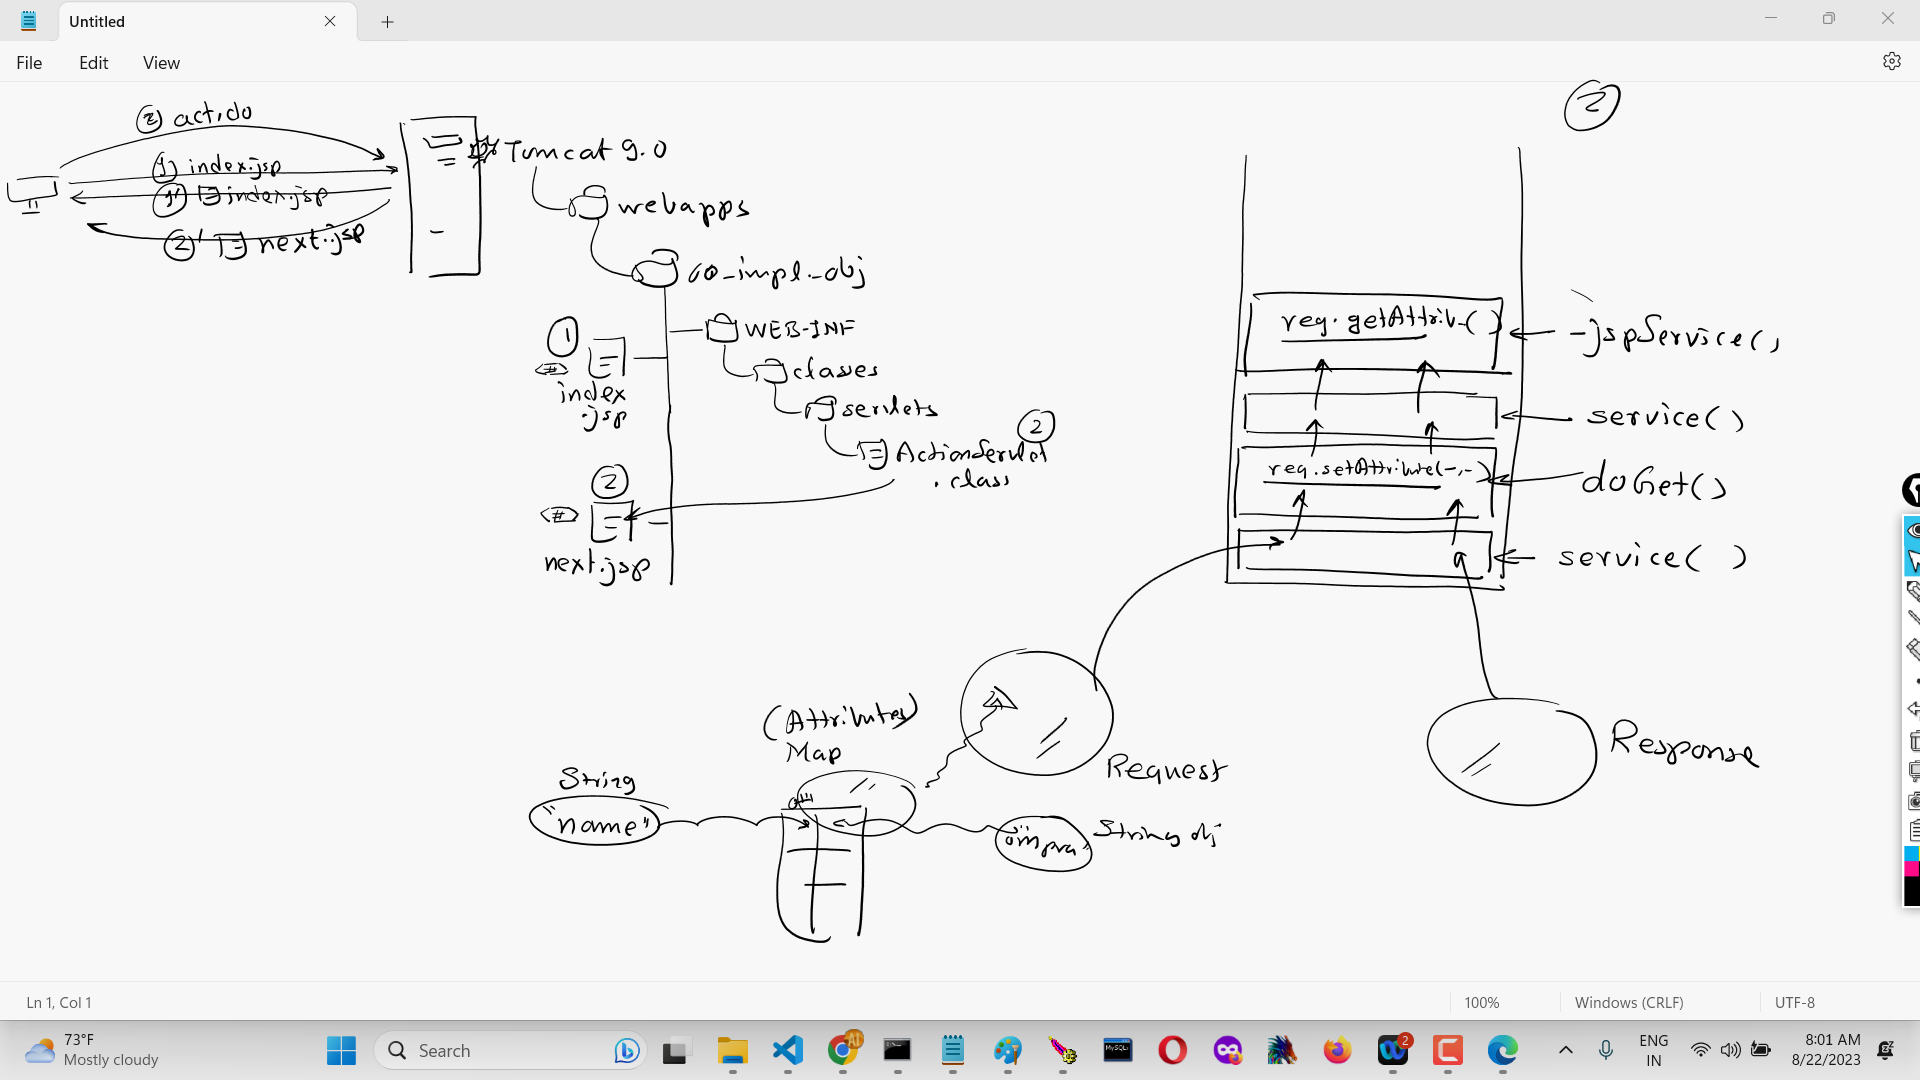 Untitled
File Edit View
② act.do
① index.jsp
①' index.jsp
②' next.jsp
Tomcat 9.0
webapps
WEB-INF
classes
servlets
ActionServlet
.class
①
index
.jsp
②
②
next.jsp
②
req.getAttrib_( )
-jspService()
service()
req.setAttribute(-,-)
doGet()
service( )
Request
Response
(Attributes)
Map
String
"name"
String obj
Ln 1, Col 1
100%
Windows (CRLF)
UTF-8
73°F
Mostly cloudy
Search
2
ENG
IN
8:01 AM
8/22/2023